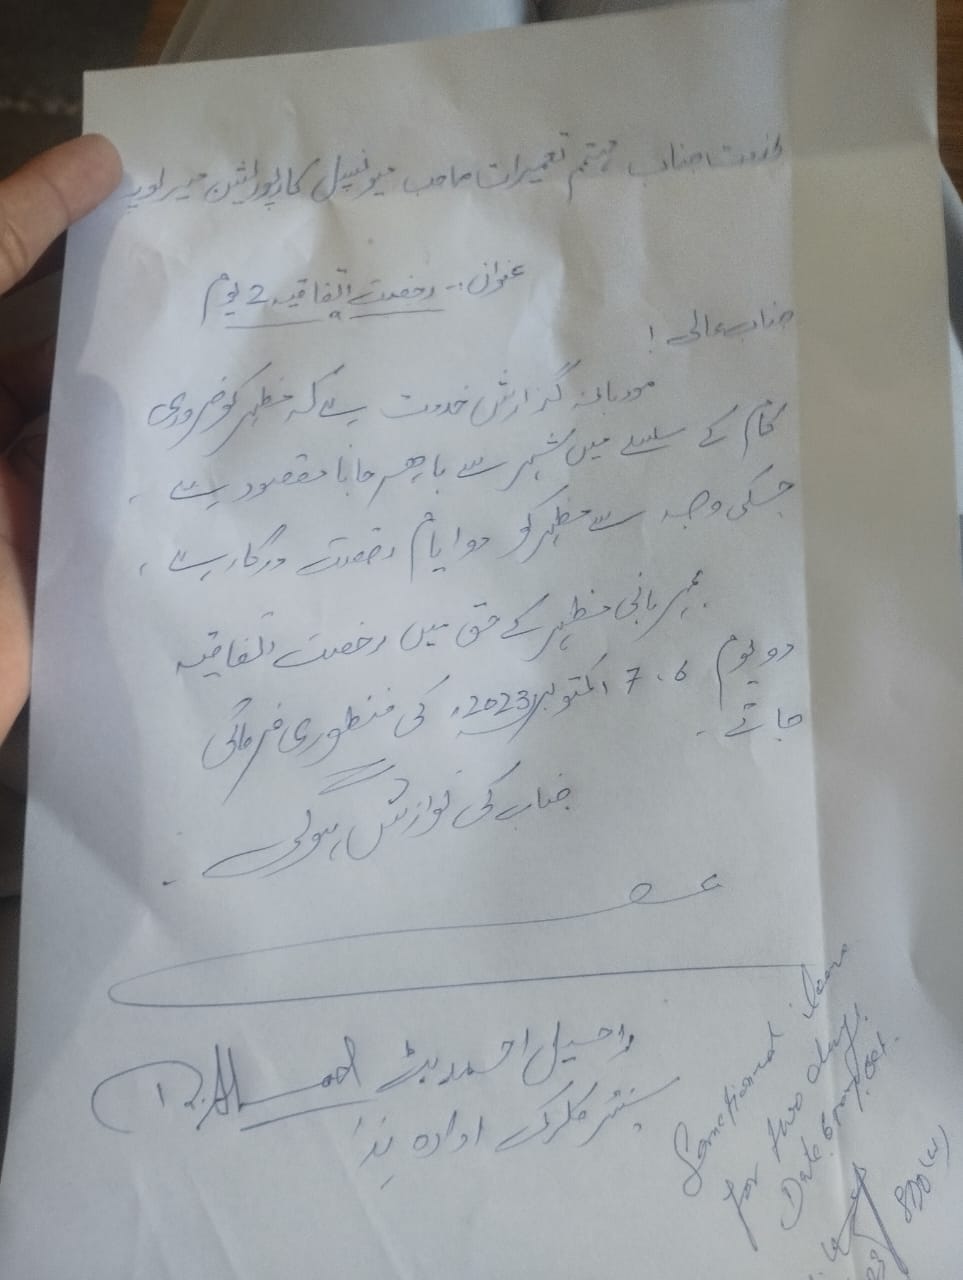 بخدمت جناب مہتمم تعمیرات صاحب میونسپل کارپوریشن میرپور
عنوان :- رخصت اتفاقیہ 2 یوم
جناب عالی !
مودبانہ گزارش خدمت ہے کہ مظہر کو ضروری
کام کے سلسلے میں شہر سے باہر جانا مقصود ہے ۔
جسکی وجہ سے مظہر کو دو ایام رخصت درکار ہے ،
بمہربانی مظہر کے حق میں رخصت اتفاقیہ
دو یوم 6 ، 7 اکتوبر 2023ء کی منظوری فرمائی
جائے ۔
جناب کی نوازش ہوگی ۔
احمد بٹ
سینئر کلرک ادارہ ہذا
Sanctioned leave
for two days.
Date 6 Oct.
SDO (W)
23